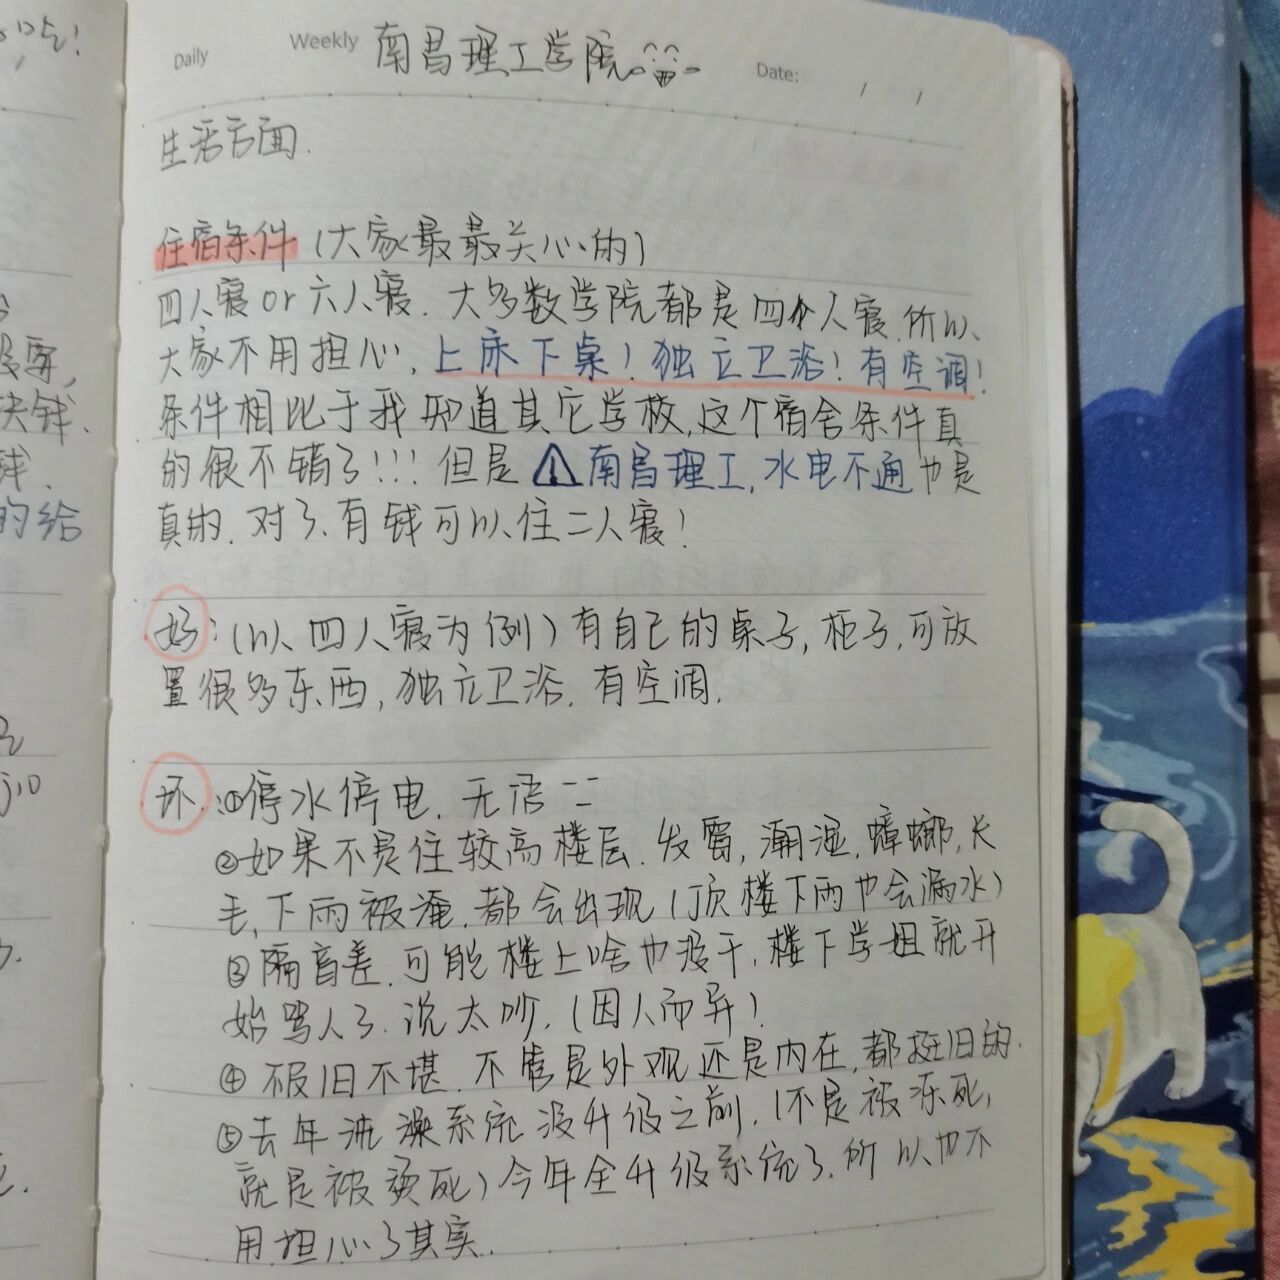 Daily Weekly 南昌理工学院 Date: / /
生活方面.
住宿条件(大家最最关心的)
四人寝or六人寝.大多数学院都是四个人寝.所以
大家不用担心,上床下桌!独立卫浴!有空调!
条件相比于我知道其它学校,这个宿舍条件真
的很不错了!!!但是⚠南昌理工,水电不通也是
真的.对了.有钱可以住二人寝!
好:(以四人寝为例)有自己的桌子,柜子,可放
置很多东西,独立卫浴.有空调.
坏:①停水停电.无语二二
②如果不是住较高楼层.发霉,潮湿.蟑螂,长
毛,下雨被淹.都会出现(顶楼下雨也会漏水)
③隔音差.可能楼上啥也没干,楼下学姐就开
始骂人了.说太吵.(因人而异)
④破旧不堪.不管是外观还是内在,都挺旧的.
⑤去年洗澡系统没升级之前.(不是被冻死,
就是被烫死)今年全升级系统了.所以也不
用担心了其实.
的给